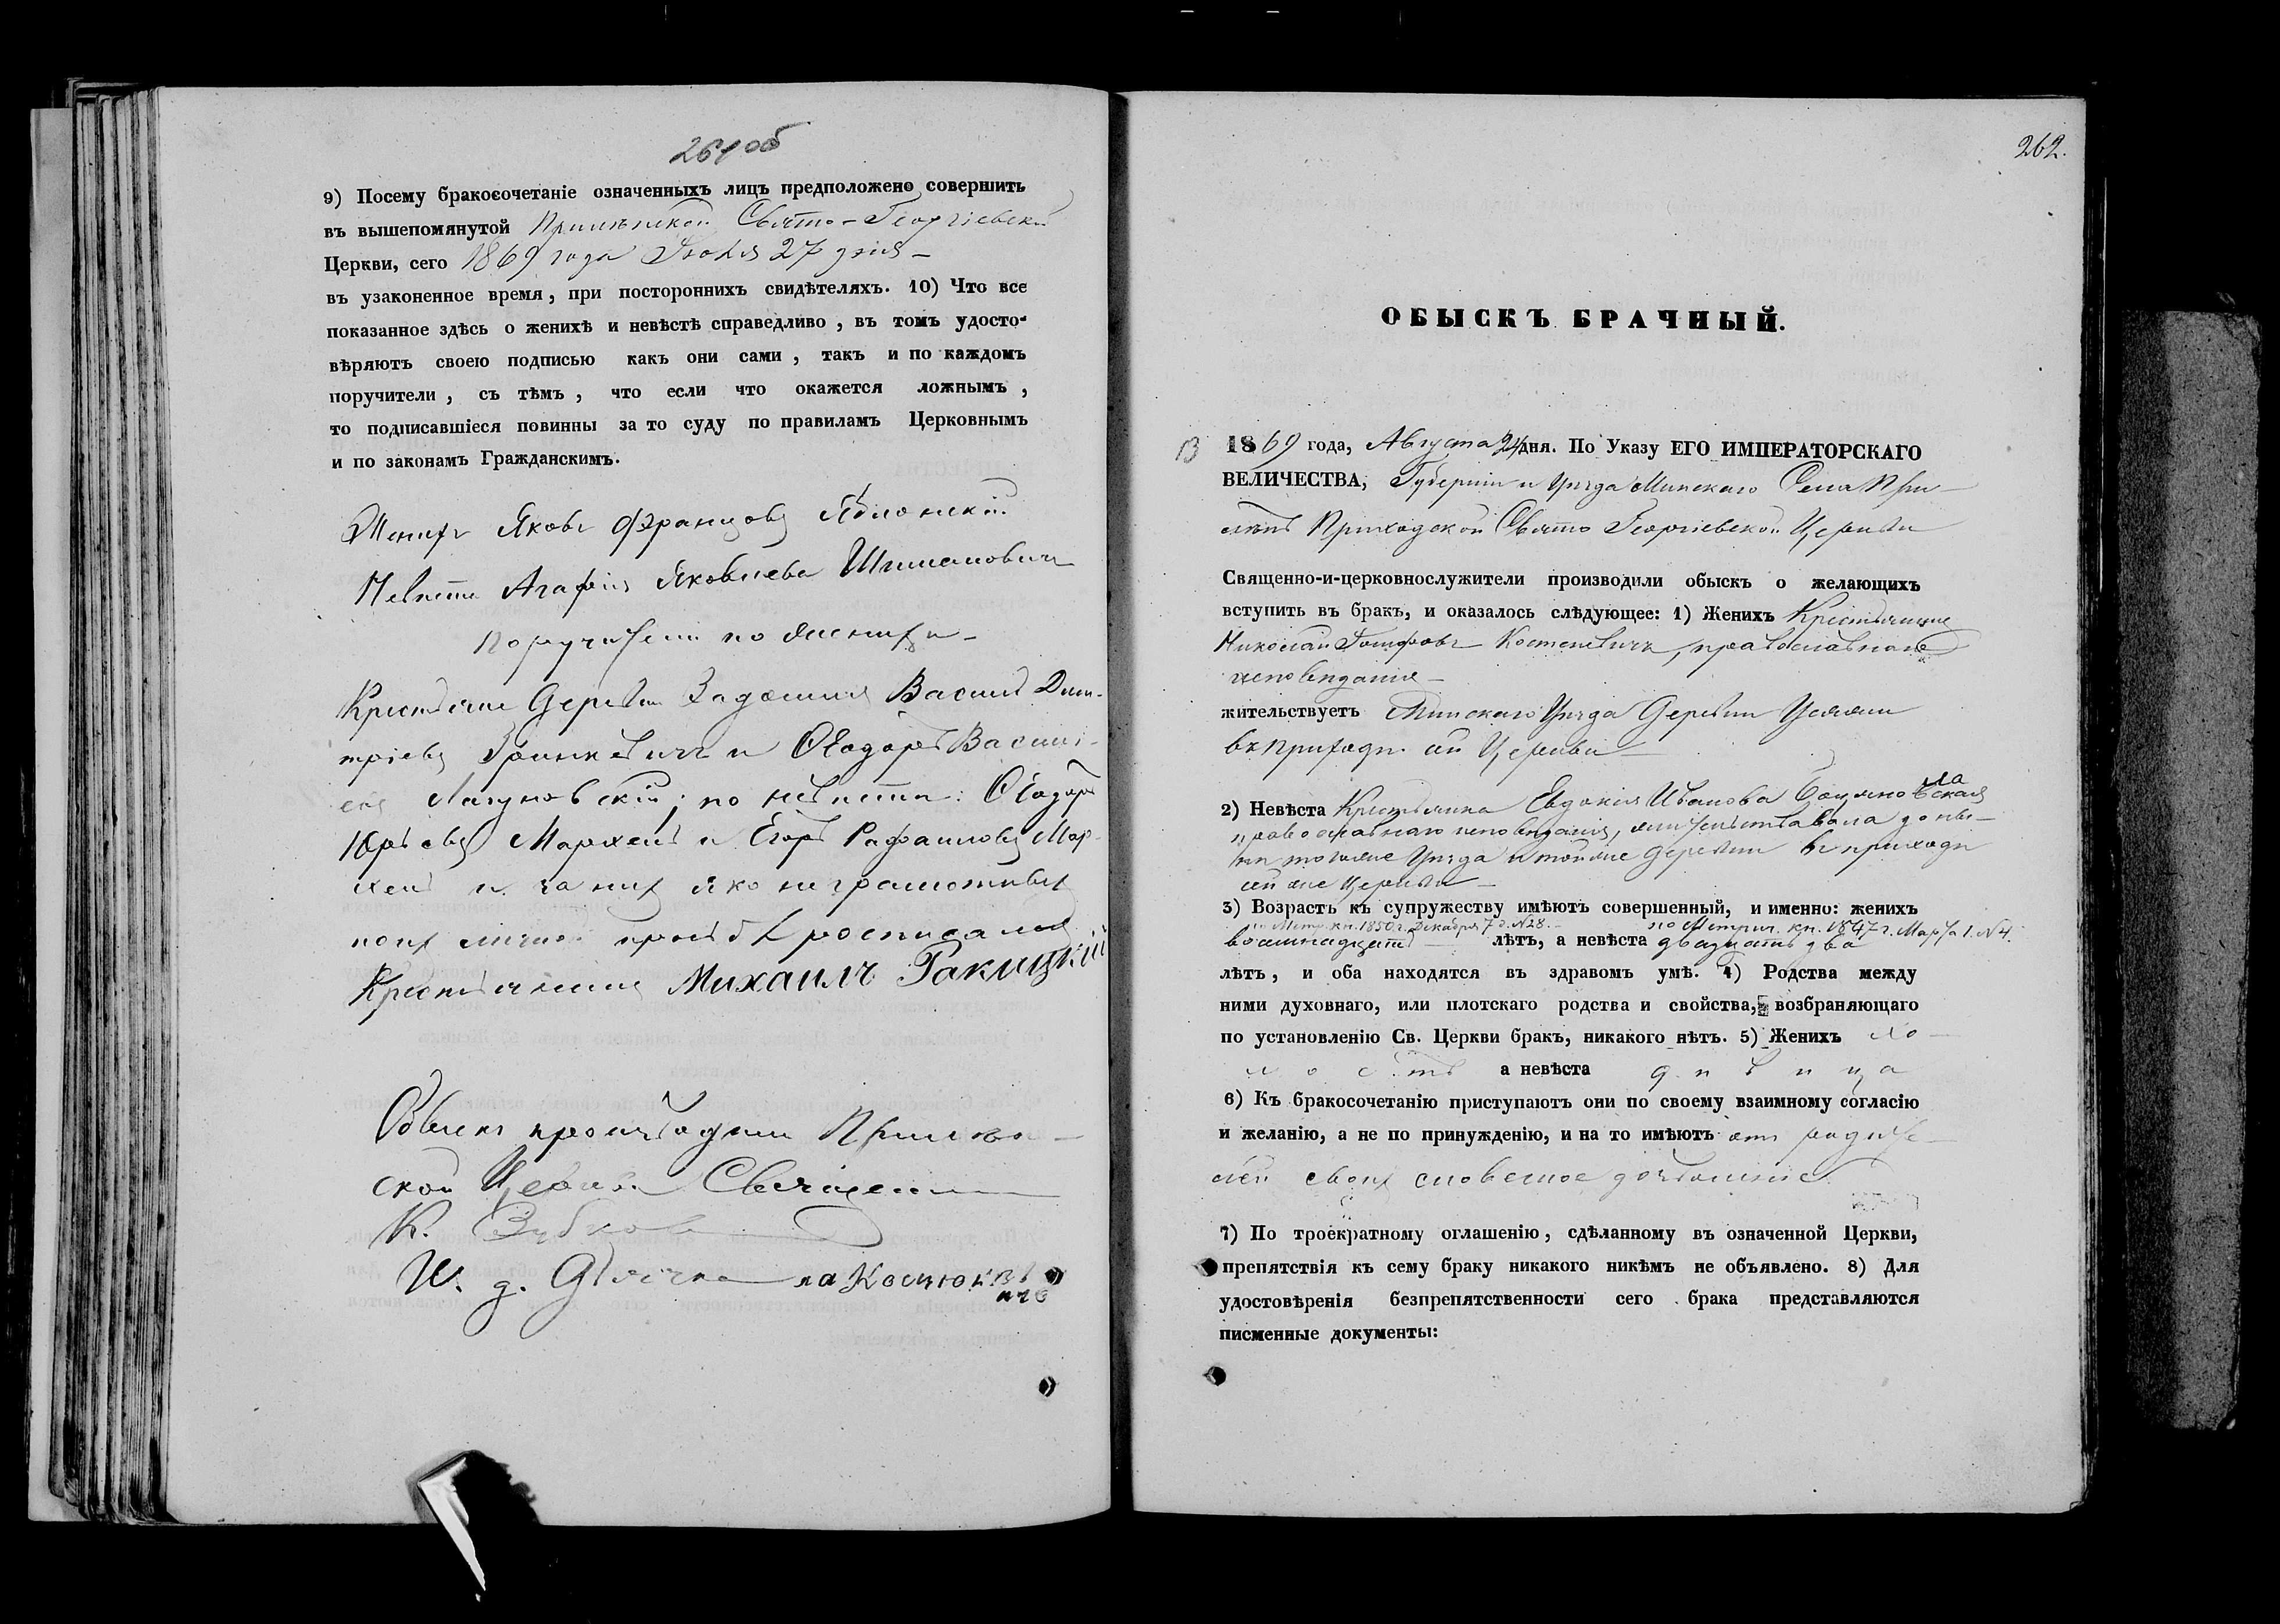 261 об
9) Посему бракосочетаніе означенныхъ лицъ предположено совершить
въ вышепомянутой Прилѣпской Свято-Георгіевской
Церкви, сего 1869 года Іюля 27 дня
въ узаконенное время, при постороннихъ свидѣтеляхъ. 10) Что все
показанное здѣсь о женихѣ и невѣстѣ справедливо, въ томъ удосто-
вѣряютъ своею подписью какъ они сами, такъ и по каждомъ
поручители, съ тѣмъ, что если что окажется ложнымъ,
то подписавшіеся повинны за то суду по правиламъ Церковнымъ
и по законамъ Гражданскимъ.
Женихъ Яковъ Францовъ Яблонскій
Невѣста Агафія Яковлева Шимановичъ
Поручители по женихѣ
Крестьяне деревни Василій Дми-
тріевъ и Ѳеодоръ Василі-
евъ Лагуновскій; по невѣстѣ: Ѳеодоръ
Юрьевъ Мархель и Егоръ Рафаиловъ Мар-
хель и за нихъ яко неграмотныхъ
по ихъ личной просьбѣ росписался
Крестьянинъ Михаилъ Ракицкій
Обыскъ производили Прилѣп-
ской Церкви Священникъ
К. Зубковъ
И. д. Дьячка
262.
ОБЫСКЪ БРАЧНЫЙ.
13 1869 года, Августа 24 дня. По Указу ЕГО ИМПЕРАТОРСКАГО
ВЕЛИЧЕСТВА, Губерніи и Уѣзда Минскаго Села При-
лѣпъ Приходской Свято Георгіевской Церкви
Священно-и-церковнослужители производили обыскъ о желающихъ
вступить въ бракъ, и оказалось слѣдующее: 1) Женихъ Крестьянинъ
Николай Костеневичъ, православнаго
исповѣданія
жительствуетъ Минскаго Уѣзда Деревни Усяжи
въ приходѣ сей Церкви
2) Невѣста Крестьянка Евдокія Иванова
православнаго исповѣданія, жительствовала до ны-
нѣ того же Уѣзда и той же деревни въ приходѣ
сей же Церкви
3) Возрастъ къ супружеству имѣютъ совершенный, и именно: женихъ
по Метр. кн. 1850 г. Декабря 7 д. №28. по Метрич. кн. 1847 г. Марта 1. №4.
восемнадцать лѣтъ, а невѣста двадцать два
лѣтъ, и оба находятся въ здравомъ умѣ. 4) Родства между
ними духовнаго, или плотскаго родства и свойства, возбраняющаго
по установленію Св. Церкви бракъ, никакого нѣтъ. 5) Женихъ хо-
лостъ а невѣста дѣвица
6) Къ бракосочетанію приступаютъ они по своему взаимному согласію
и желанію, а не по принужденію, и на то имѣютъ отъ родите-
лей своихъ словесное дозволеніе.
7) По троекратному оглашенію, сдѣланному въ означенной Церкви,
препятствія къ сему браку никакого никѣмъ не объявлено. 8) Для
удостовѣренія безпрепятственности сего брака представляются
писменные документы: